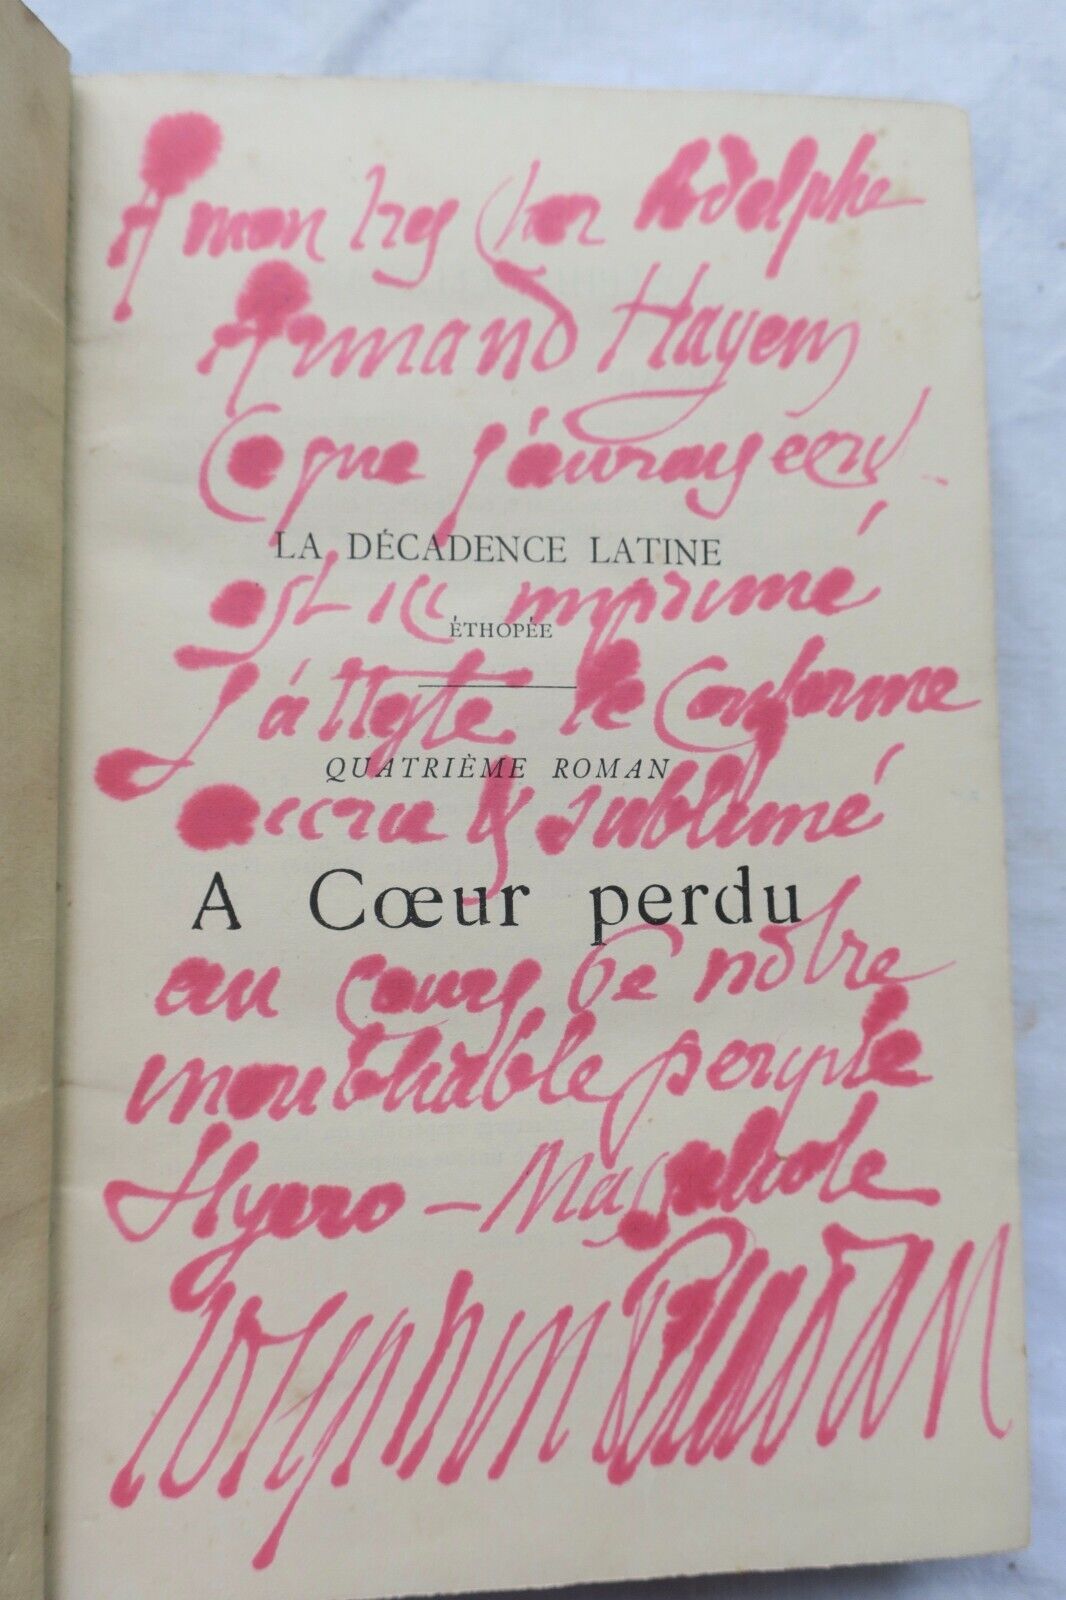 A mon très cher Adolphe
Armand Hayem
Ce que j'auray écrit
LA DÉCADENCE LATINE
est ici imprimé
ÉTHOPÉE
J'atteste le conforme
QUATRIÈME ROMAN
accru & sublimé
A Cœur perdu
au cours de notre
inoubliable périple
Hyéro-Magnehole
Joséphin Péladan